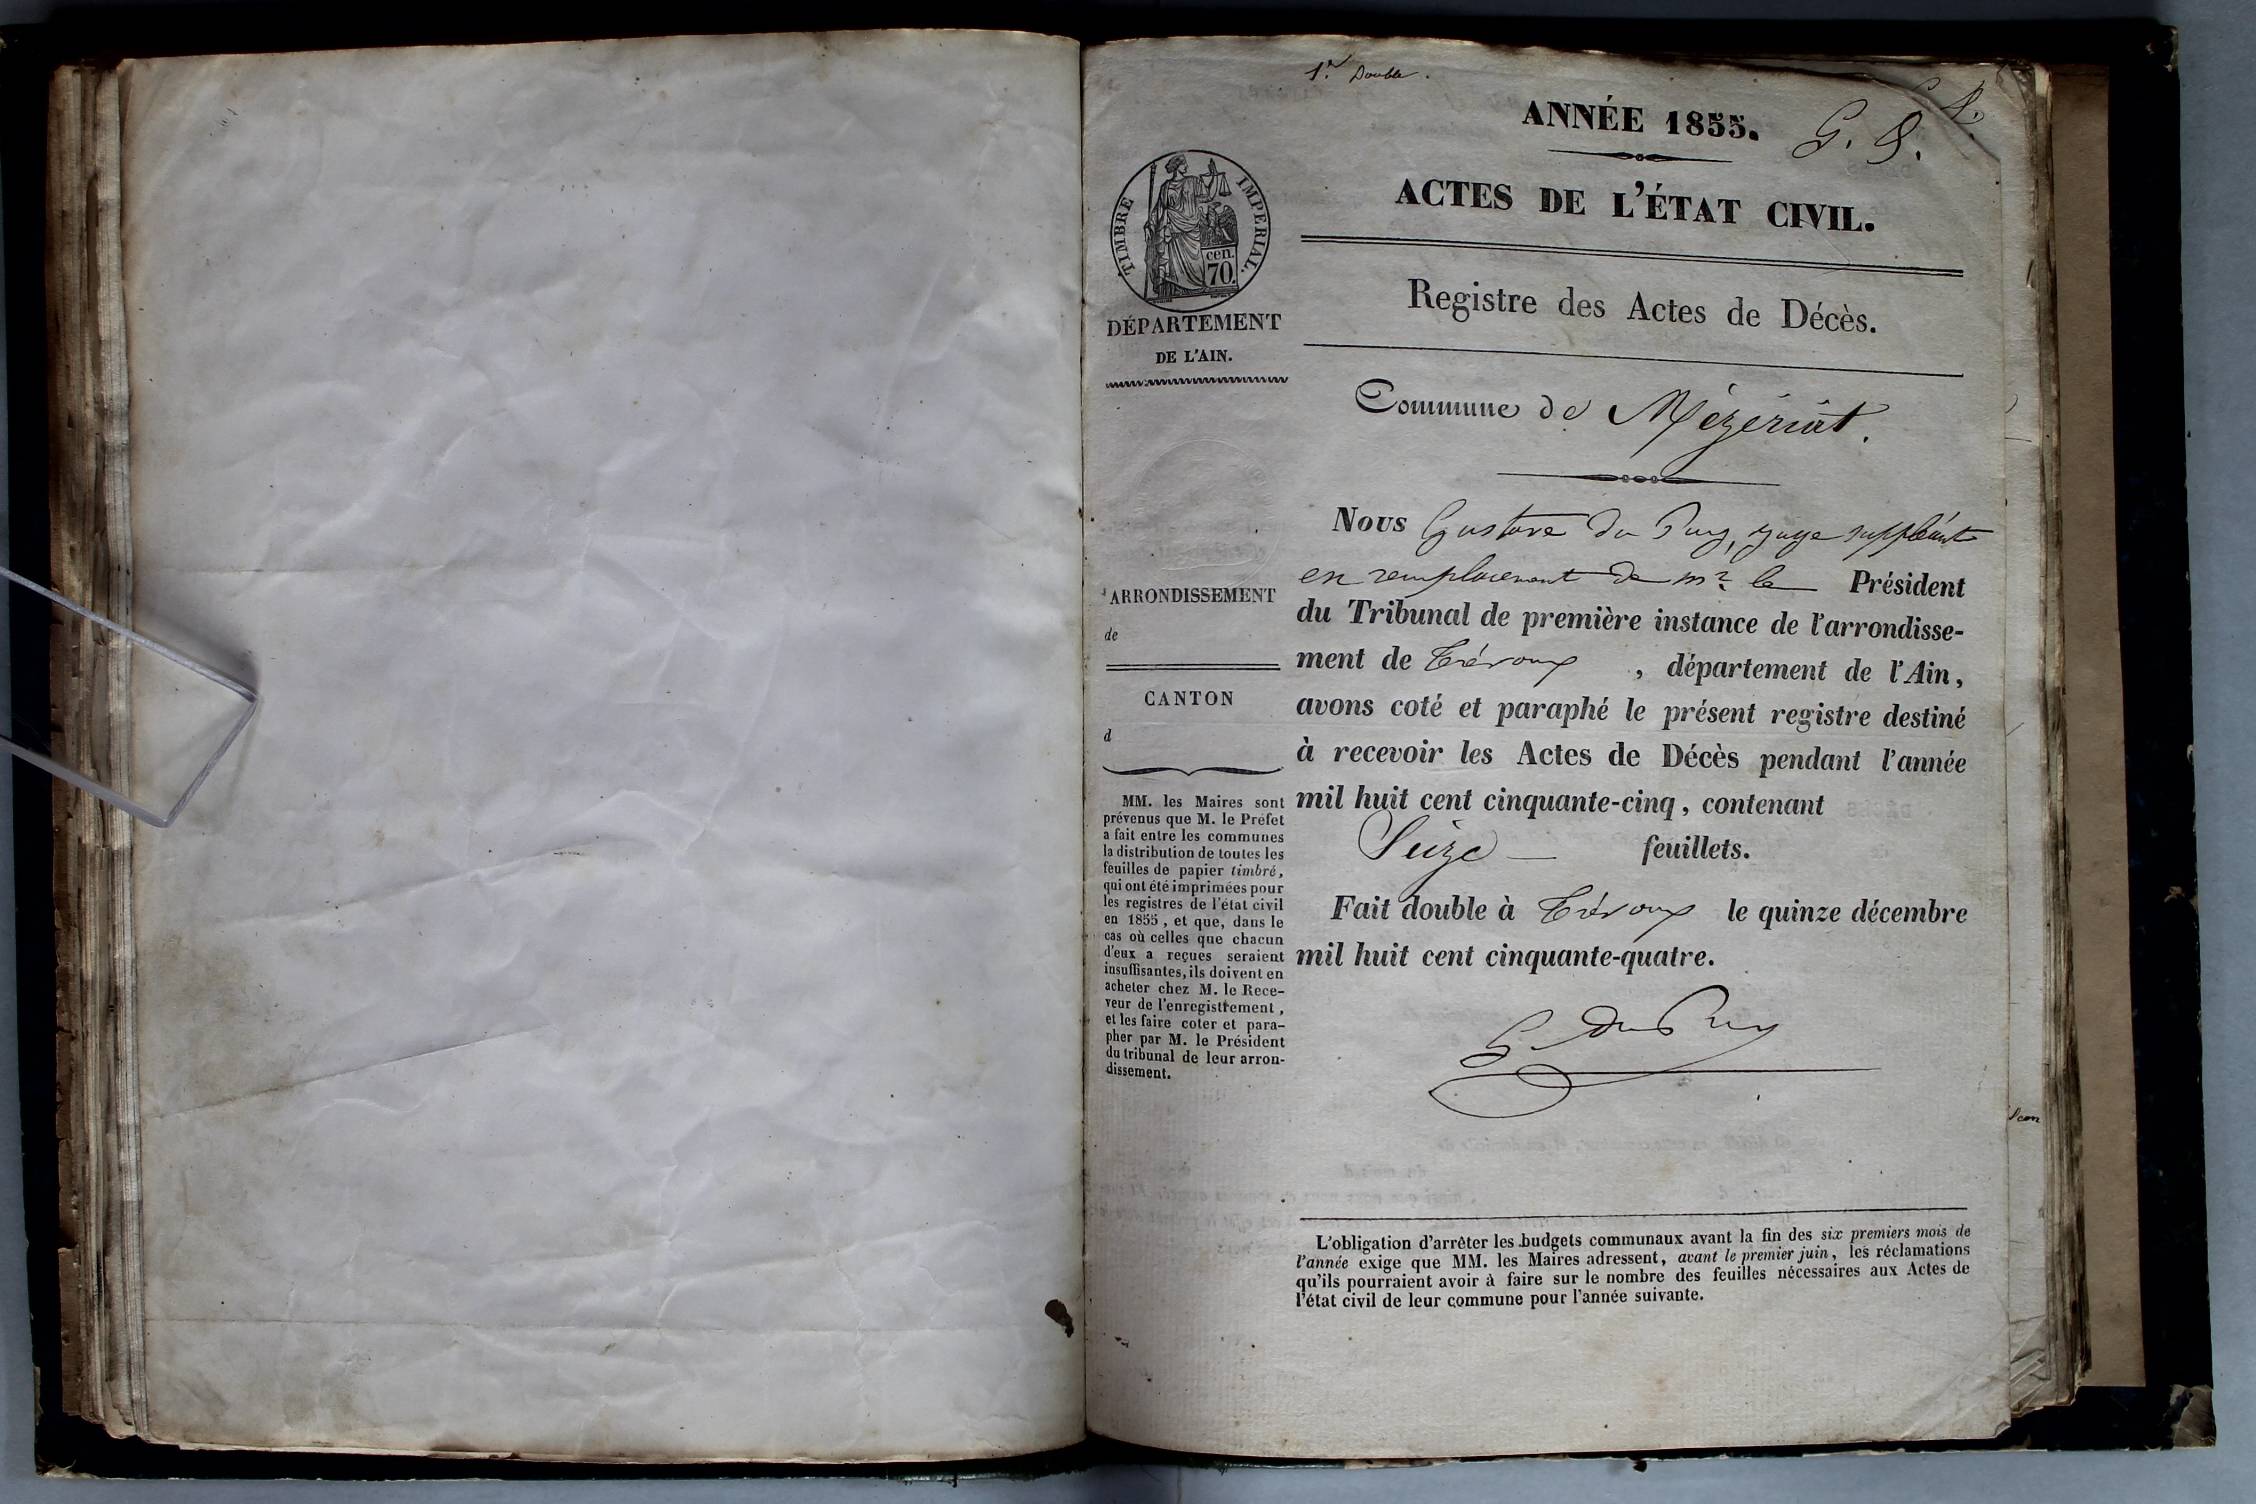 1.r Double.
ANNÉE 1855.
G. P.
ACTES DE L'ÉTAT CIVIL.
TIMBRE IMPERIAL.
cen.
70.
DÉPARTEMENT
DE L'AIN.
Registre des Actes de Décès.
Commune de Mézériat.
Nous Gustave Du Puy, juge suppléant
en remplacement de Mr. le Président
du Tribunal de première instance de l'arrondisse-
ment de Trévoux , département de l'Ain,
avons coté et paraphé le présent registre destiné
à recevoir les Actes de Décès pendant l'année
mil huit cent cinquante-cinq, contenant
Seize — feuillets.
Fait double à Trévoux le quinze décembre
mil huit cent cinquante-quatre.
G. Du Puy
ARRONDISSEMENT
de
CANTON
d
MM. les Maires sont
prévenus que M. le Préfet
a fait entre les communes
la distribution de toutes les
feuilles de papier timbré,
qui ont été imprimées pour
les registres de l'état civil
en 1855, et que, dans le
cas où celles que chacun
d'eux a reçues seraient
insuffisantes, ils doivent en
acheter chez M. le Rece-
veur de l'enregistrement,
et les faire coter et para-
pher par M. le Président
du tribunal de leur arron-
dissement.
L'obligation d'arrêter les budgets communaux avant la fin des six premiers mois de
l'année exige que MM. les Maires adressent, avant le premier juin, les réclamations
qu'ils pourraient avoir à faire sur le nombre des feuilles nécessaires aux Actes de
l'état civil de leur commune pour l'année suivante.